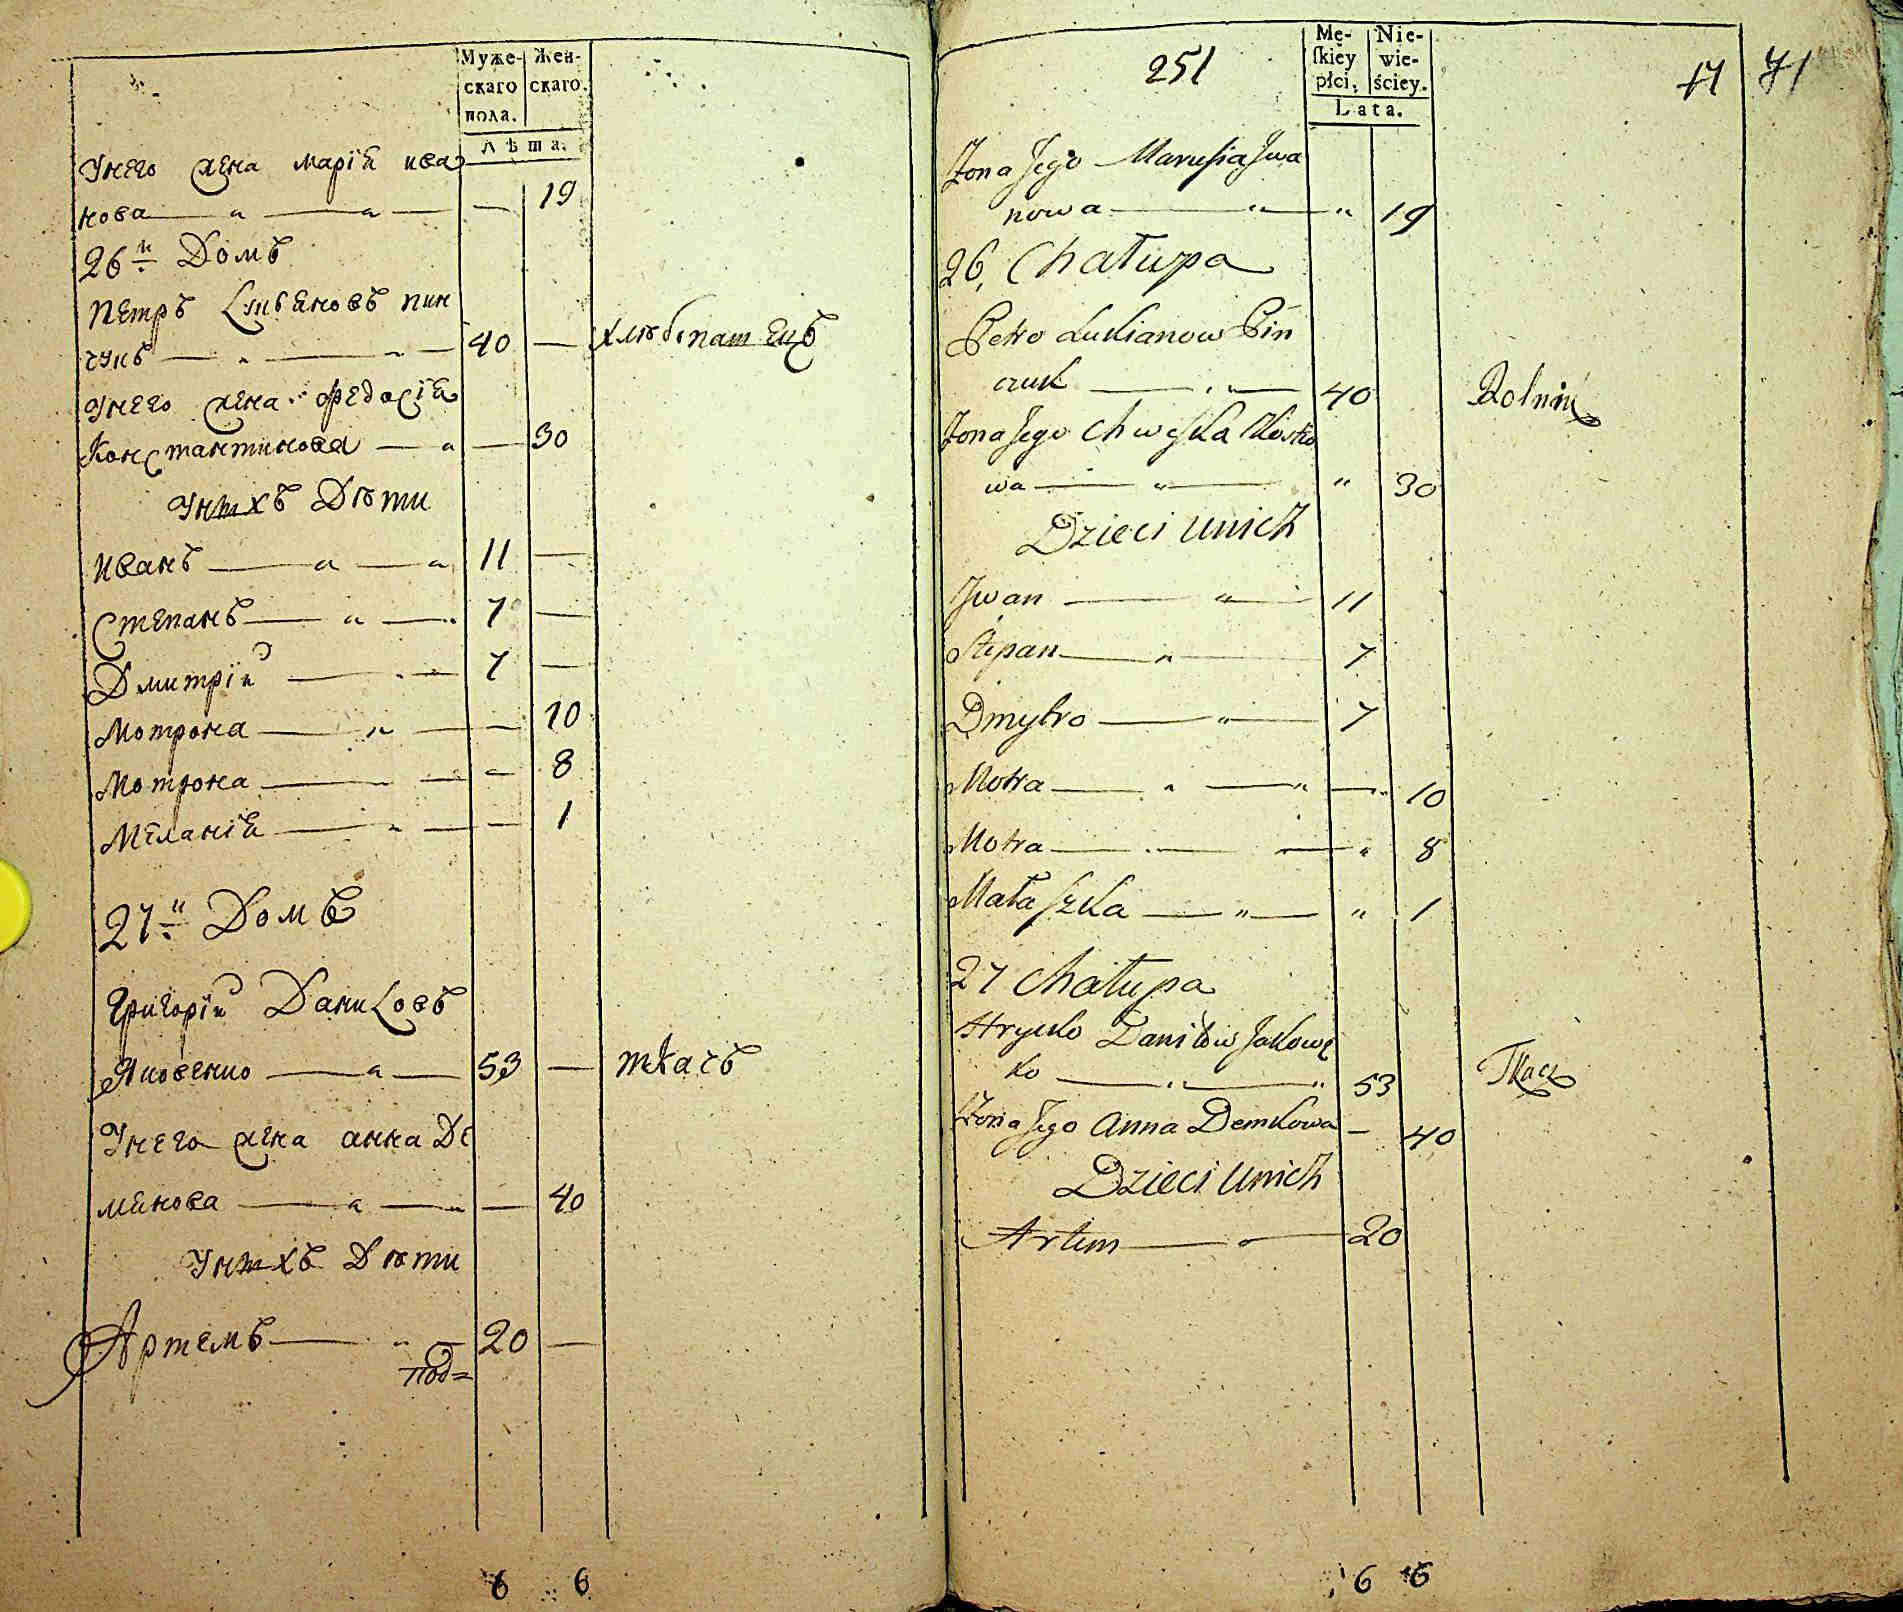 Муже-
скаго
пола.
Жен-
скаго.
Лѣта.
Унего жена марія ива
нова — 19
26й Домъ
Петръ Лукяновъ пин
чукъ — 40 — хлѣбопашецъ
Унего жена федосія
Константинова — 30
Унихъ Дѣти
Иванъ — 11 —
Степанъ — 7 —
Дмитрій — 7 —
Мотрона — 10
Мотрона — 8
Меланія — 1
27й Домъ
Григорій Даниловъ
Яковенко — 53 — ткачъ
Унего жена анна Де
мянова — 40
Унихъ Дѣти
Артемъ — 20 —
под=
6 6
251
Mę-
skiey
płci.
Nie-
wie-
ściey.
Lata.
17 71
Żona Jego Marusia Jwa
nowa — " 19
26, Chałupa
Petro Lukianow Pin
czuk — 40 Rolnik
Żona Jego Chweska Kostko
wa — " 30
Dzieci unich
Jwan — 11
Stepan — 7
Dmytro — 7
Motra — 10
Motra — 8
Małaszka — " 1
27 Chałupa
Hryćko Daniłow Jakowę
ko — 53 Tkacz
Żona Jego Anna Demkowa — 40
Dzieci unich
Artem — 20
6 6